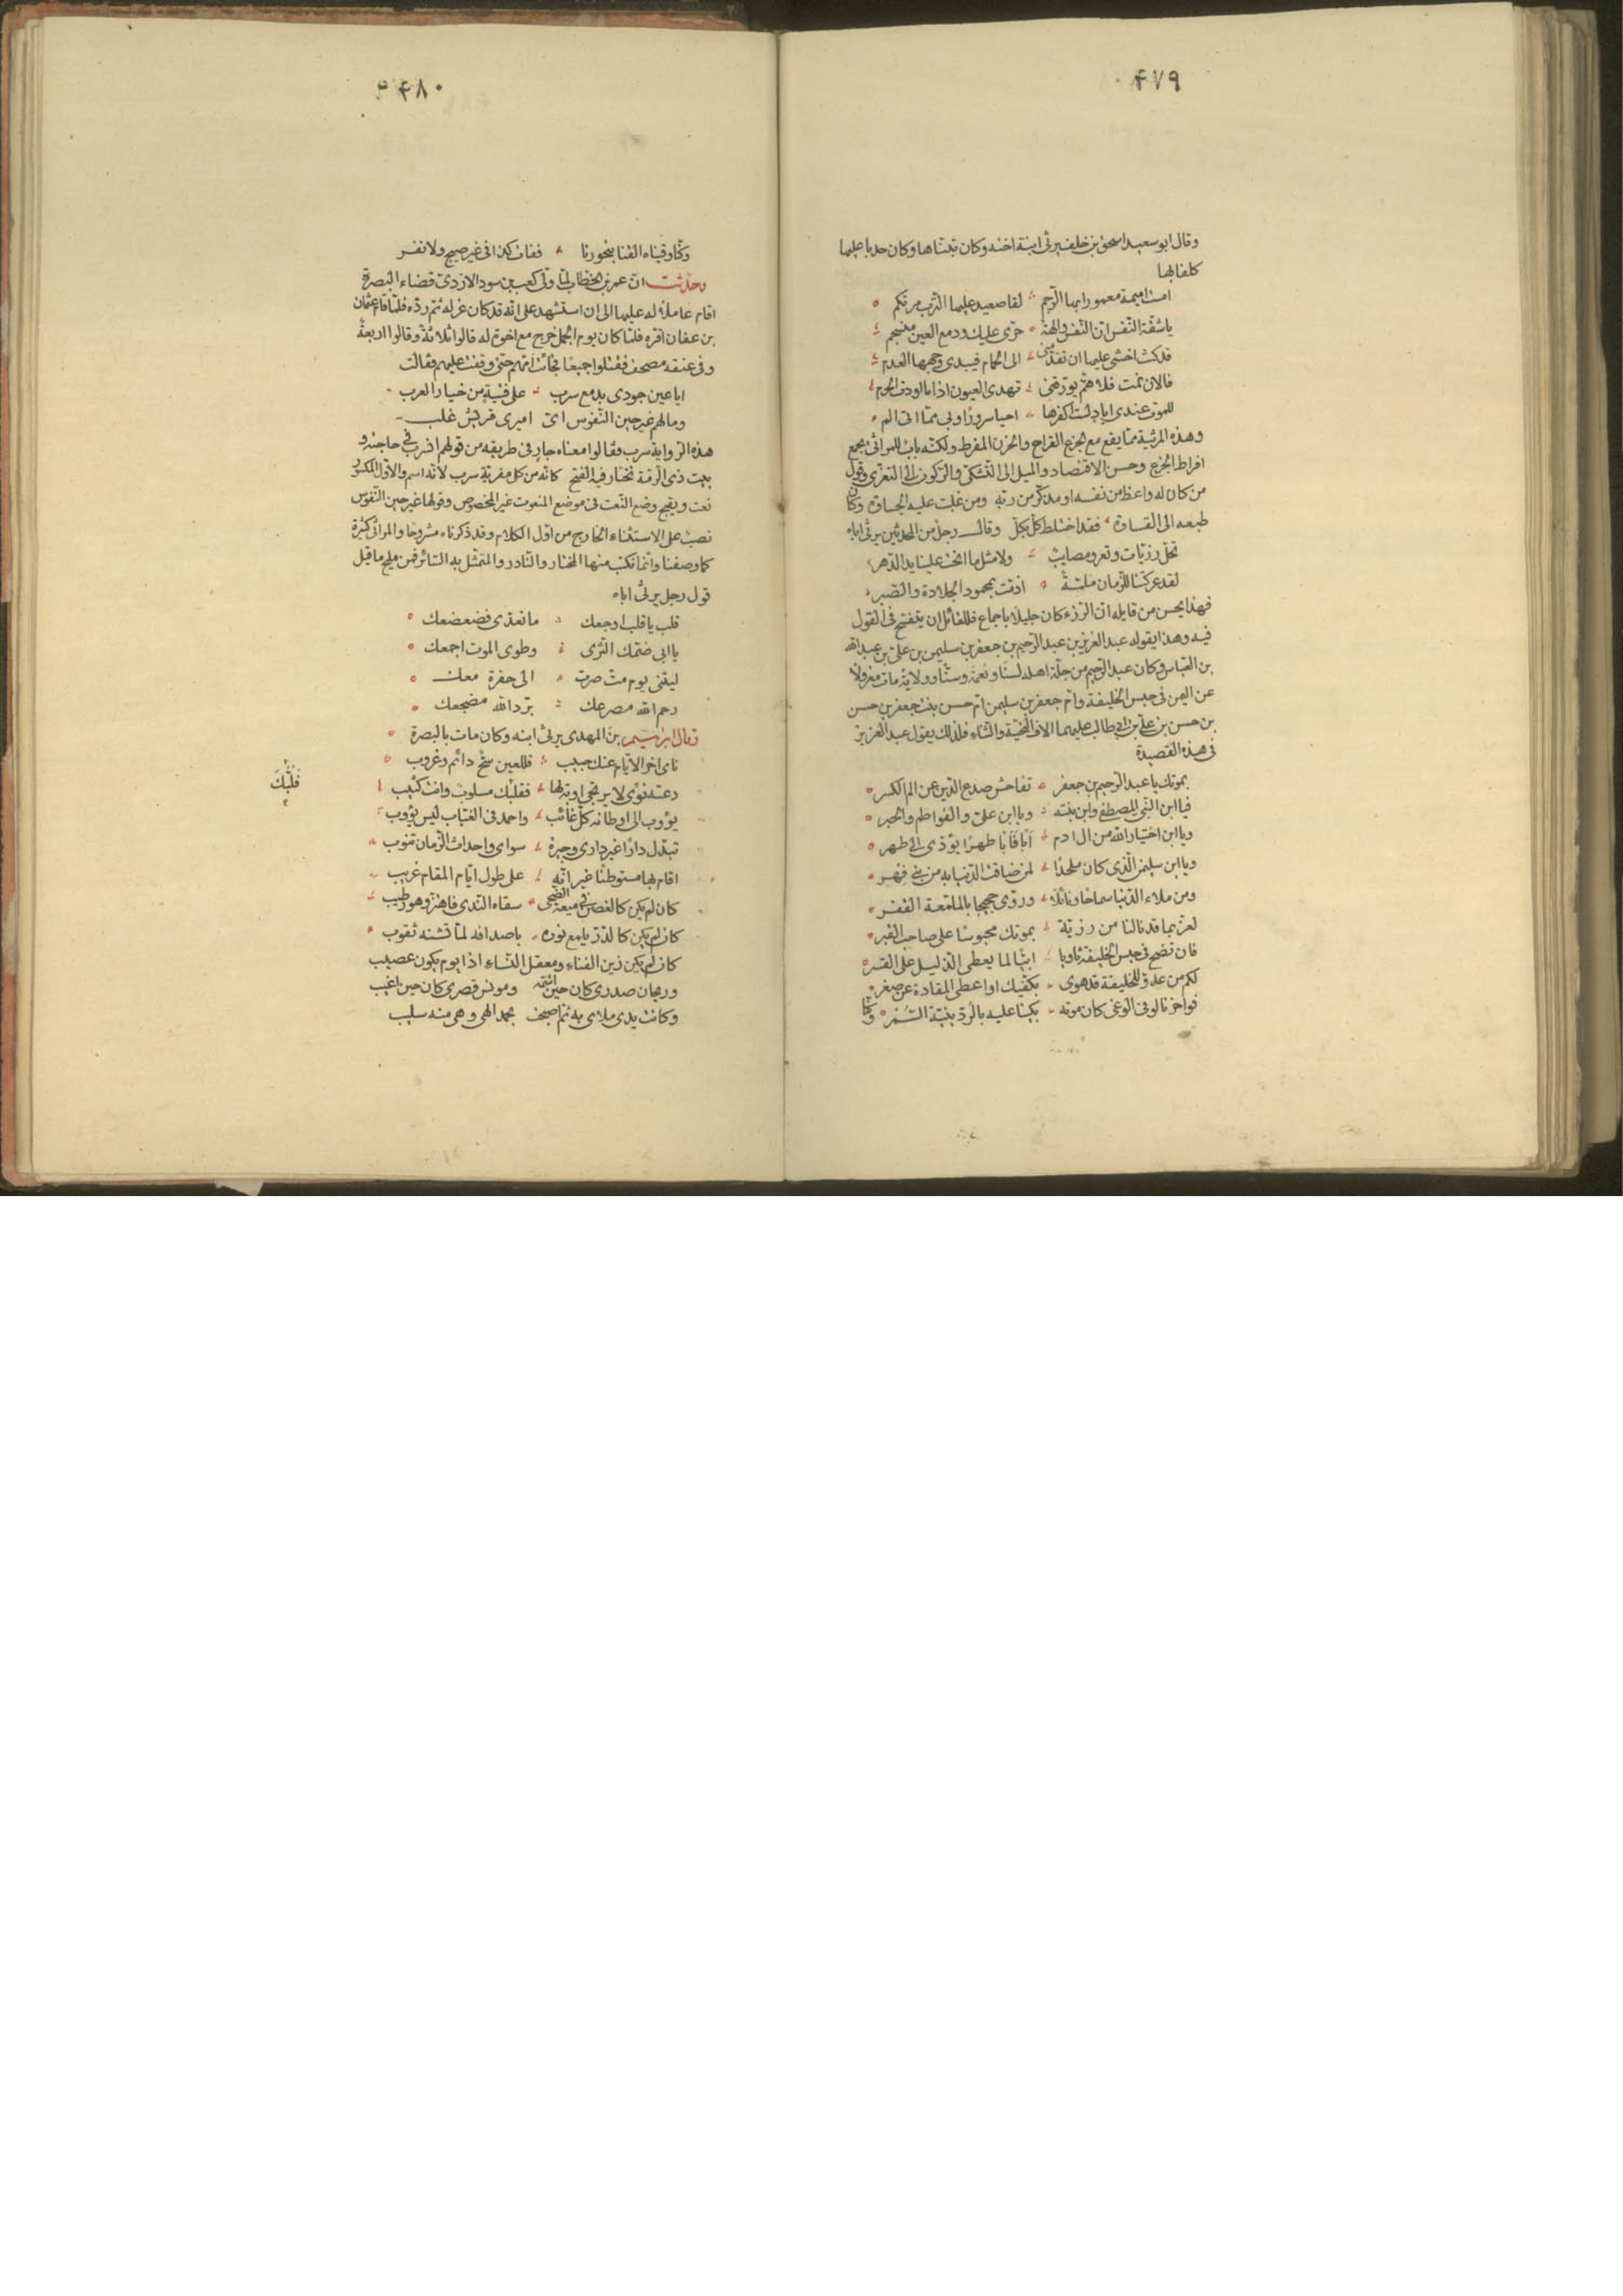 ٤٧٩
وقال ابو سعيد اسحق بن خلف يرثى ابنة اخته وكان تبناها وكان حدبا عليها
كلفا بها
امست اميمة معمورا بها الرجم لقا صعيد عليها الترب مرتكم
يا شقة النفس ان النفس والهة حرى عليك ودمع العين منسجم
قد كنت اخشى عليها ان تقدمنى الى الحمام فيبدى وجهها العدم
فالان نمت فلا هم يورقنى تهدى العيون اذا ما اودت الحرم
للموت عندى اياد لست اكفرها احيا سرورا وبى مما اتى الم
وهذه المرثية مما يقع مع الجزع القراح والحزن المفرط ولكنه باب للمراثى يجمع
افراط الجزع وحسن الاقتصاد والميل الى التشكى والركون الى التعزى وقول
من كان له واعظ من نفسه او مذكر من ربه ومن غلبت عليه الجساة وكان
طبعه الى القساة فقد اختلط كل بكل وقال رجل من المحدثين يرثى اباه
تحل رزيات وتعرو مصايب ولا مثل ما انحت علينا يد الدهر
لقد عركتنا للزمان ملمة اذقت بمحمود الجلادة والصبر
فهذا يحسن من قايله ان الرزء كان جليلا باجماع فللقائل ان يتفتح فى القول
فيه وهذا يقوله عبد العزيز بن عبد الرحيم بن جعفر بن سليمن بن على بن عبد الله
بن العباس وكان عبد الرحيم من جلة اهله لسنا ونعمة وسنا وولاية مات معزولا
عن اليمن فى حبس الخليفة وام جعفر بن سليمن ام حسن بنت جعفر بن حسن
بن حسن بن على بن ابى طالب عليهما الاف التحية والثناء فلذلك يقول عبد العزيز
فى هذه القصيدة
بموتك يا عبد الرحيم بن جعفر تفاحش صدع الدين عن الم الكسر
فيا ابن النبى المصطفى وابن بنته ويا ابن على والفواطم والحبر
ويا ابن اختيار الله من ال ادم ابا فابا طهرا يؤدى الى طهر
ويا ابن سليمن الذى كان ملجدا لمن ضاقت الدنيا به من بنى فهر
ومن ملاء الدنيا سماحا ونائلا وروى حجيجا بالملمعة القفر
لعز بما قد نالنا من رزية بموتك محبوسا على صاحب القبر
فان تضح فى حبس الخليفة ثاويا ابيا لما يعطى الذليل على القسر
لكم من عدو للخليفة قد هوى بكفيك او اعطى المقادة عن صغر
فواحزنا لو فى الوغى كان موته بكينا عليه بالردينية السمر وكنا
٤٨٠
وكنا وقيناه القنا بنحورنا ففات كذا فى غير صيح ولا نفر
وحدثت ان عمر بن الخطاب لما ولى كعب بن سور الازدى قضاء البصرة
اقام عاملا له عليها الى ان استشهد على انه قد كان عزله ثم رده فلما قام عثمان
بن عفان اقره فلما كان يوم الجمل خرج مع اخوة له قالوا ثلاثة وقالوا اربعة
وفى عنقه مصحف فقتلوا جميعا فجائت امهم حتى وقفت عليهم فقالت
ايا عين جودى بدمع سرب على فتية من خيار العرب
وما لهم غير حين النفوس اى اميرى قريش غلب
هذه الرواية سرب وقالوا معناه جار فى طريقه من قولهم انسرب فى حاجته و
بيت ذى الرمة نختار فيه الفتح كانه من كلى مفرية سرب لانه اسم والاول المكسور
نعت ويقبح وضع النعت فى موضع المنعوت غير المخصوص وقولها غير حين النفوس
نصب على الاستثناء الخارج من اول الكلام وقد ذكرناه مشروحا والمراثى كثيرة
كما وصفنا وانما نكتب منها المختار والنادر والمتمثل به السائر فمن مليح ما قيل
قول رجل يرثى اباه
قلب يا قلب اوجعك ما تعدى فضعضعك
يا ابى ضمك الثرى وطوى الموت اجمعك
ليتنى يوم مت صرت الى حفرة معك
رحم الله مصرعك برد الله مضجعك
وقال ابراهيم بن المهدى يرثى ابنه وكان مات بالبصرة
ناى اخر الايام عنك حبيب فللعين سح دائم وغروب
دعته نوى لا يرتجى اوبة لها فقلبك مسلوب وانت كئيب
قلبك
يؤوب الى اوطانه كل غائب واحمد فى الغياب ليس يؤوب
تبدل دارا غير دارى وجيرة سواى واحداث الزمان تنوب
اقام بها مستوطنا غير انه على طول ايام المقام غريب
كان لم يكن كالغصن فى ميعة الضحى سقاه الندى فاهتز وهو رطيب
كان لم يكن كالدر يلمع نوره باصدافه لما تشنه ثقوب
كان لم يكن زين الفناء ومعقل النساء اذا يوم يكون عصيب
وريحان صدرى كان حين اشمه ومونس قصرى كان حين اغيب
وكانت يدى ملاى به ثم اصبحت بحمد الهى وهى منه سليب